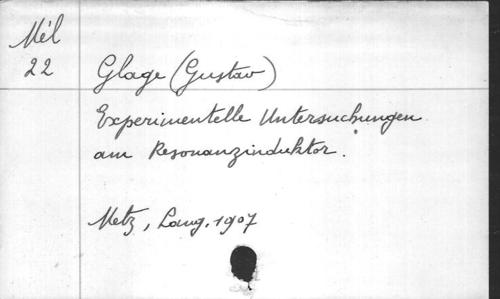 Mél
22
Glage (Gustav)
Experimentelle Untersuchungen
am Resonanzinduktor.
Metz, Lang, 1907